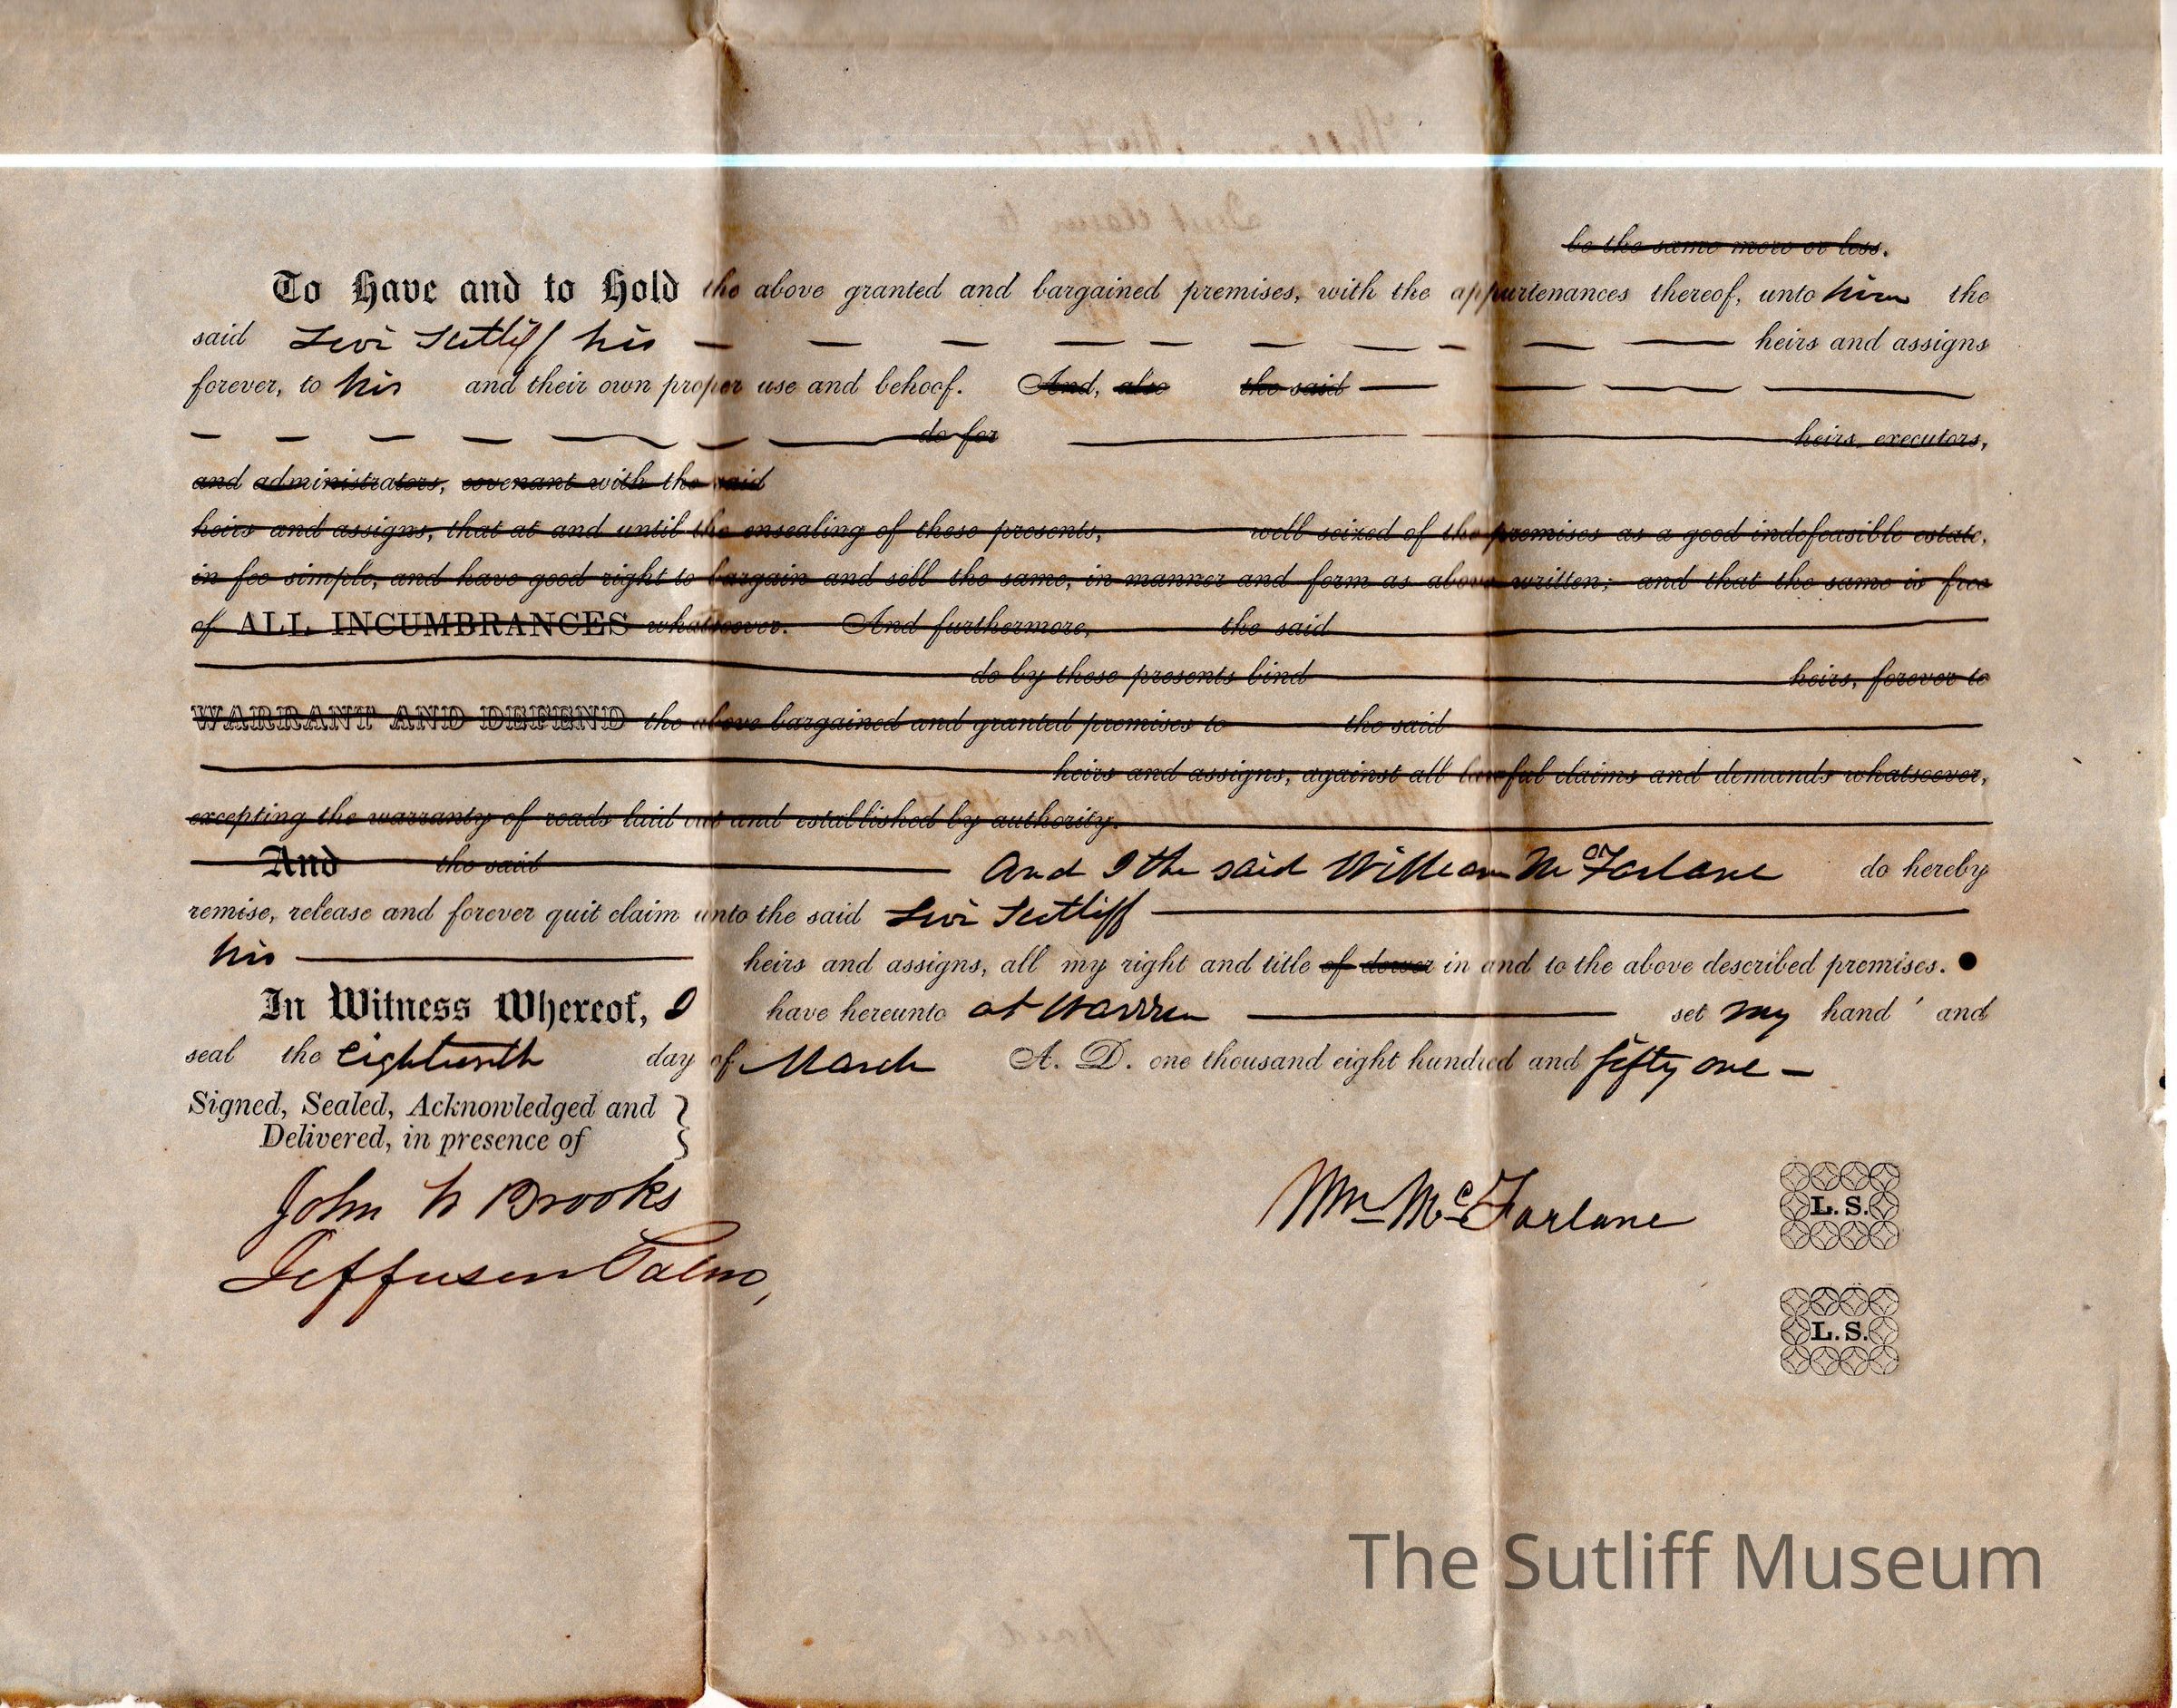 be the same more or less.
To Have and to Hold the above granted and bargained premises, with the appurtenances thereof, unto him the
said Levi Sutliff his heirs and assigns
forever, to his and their own proper use and behoof. And, also the said
do for heirs, executors,
and administrators, covenant with the said
heirs and assigns, that at and until the ensealing of these presents, well seized of the premises as a good indefeasible estate,
in fee simple, and have good right to bargain and sell the same, in manner and form as above written; and that the same is free
of ALL INCUMBRANCES whatsoever. And furthermore, the said
do by these presents bind heirs, forever to
WARRANT AND DEFEND the above bargained and granted premises to the said
heirs and assigns, against all lawful claims and demands whatsoever,
excepting the warranty of roads laid out and established by authority.
And the said And I the said William McFarlane do hereby
remise, release and forever quit claim unto the said Levi Sutliff
his heirs and assigns, all my right and title of dower in and to the above described premises.
In Witness Whereof, I have hereunto at Warren set my hand and
seal the eighteenth day of March A. D. one thousand eight hundred and fifty one –
Signed, Sealed, Acknowledged and
Delivered, in presence of
John W Brooks
Wm McFarlane
L. S.
Jefferson Palm,
L. S.
The Sutliff Museum